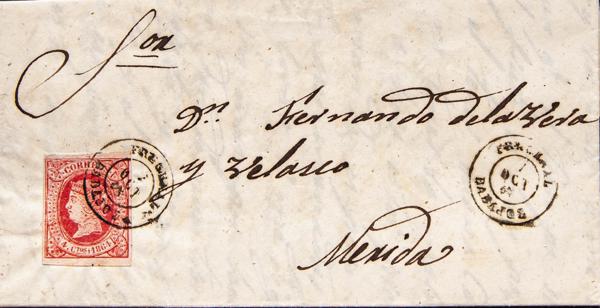 Sor
Dn Fernando de la Vera
y Velasco
Merida
CORREOS
4 CTOS 1864
FREGENAL
7
OCT
BADAJOZ
FREGENAL
7
OCT
BADAJOZ